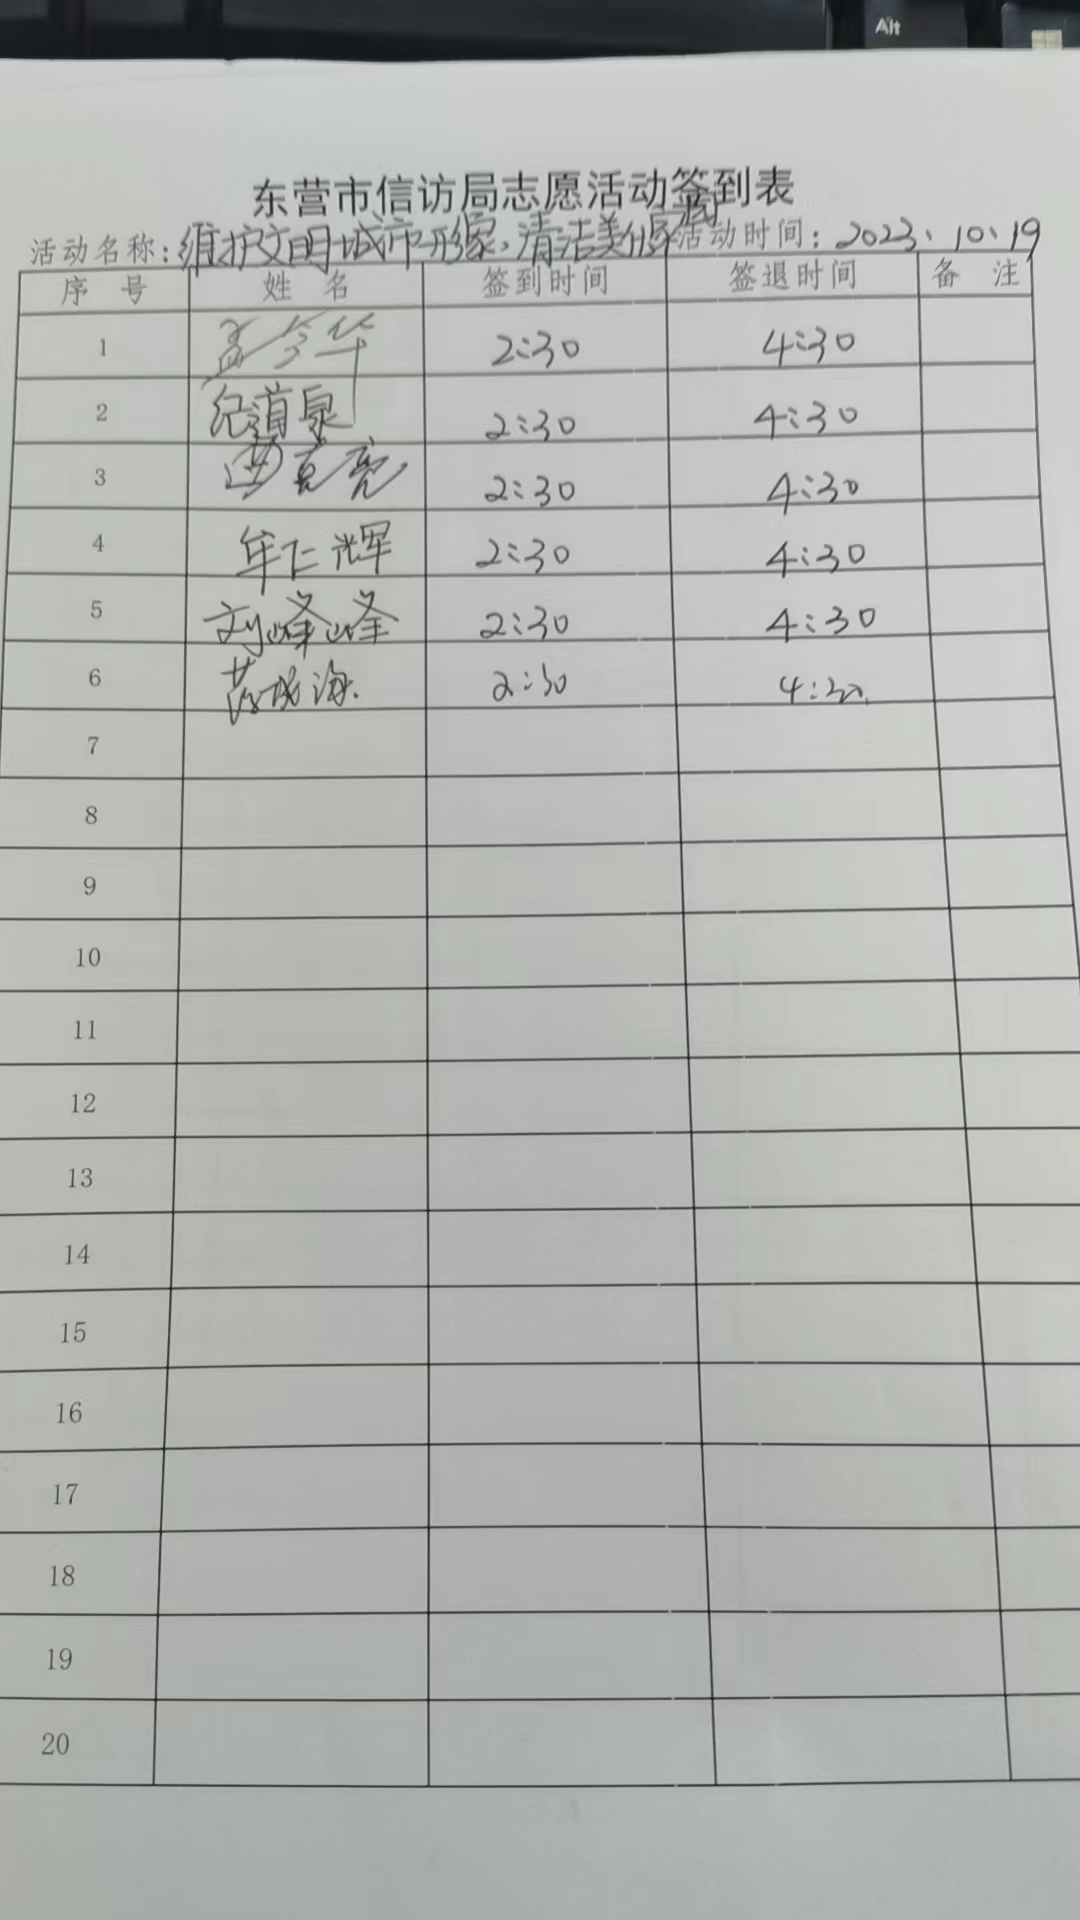 Alt
东营市信访局志愿活动签到表
活动名称:维护文明城市形象、清洁美化家园 活动时间:2023、10、19
序 号 姓 名 签到时间 签退时间 备 注
1 孟令华 2:30 4:30
2 纪道泉 2:30 4:30
3 克亮 2:30 4:30
4 牟仁辉 2:30 4:30
5 刘峰峰 2:30 4:30
6 海 2:30 4:30
7
8
9
10
11
12
13
14
15
16
17
18
19
20